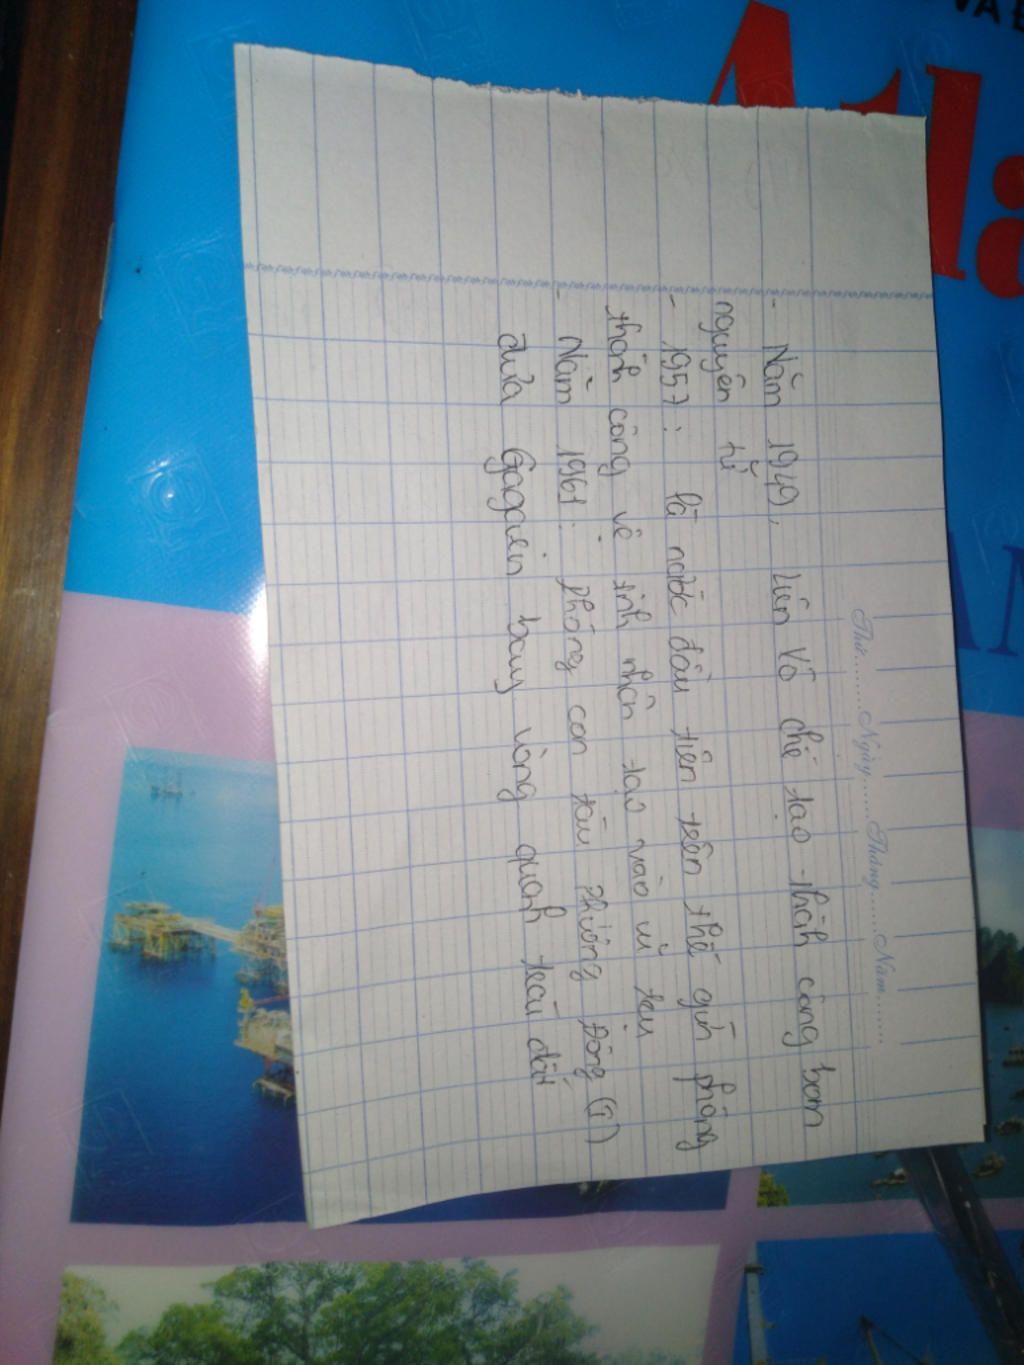 VÀ Đ
Atla
AN
Thứ........Ngày......Tháng.......Năm.......
- Năm 1949, Liên Xô chế tạo thành công bom
nguyên tử
- 1957: là nước đầu tiên trên thế giới phóng
thành công vệ tinh nhân tạo vào vũ trụ
- Năm 1961: phóng con tàu Phương Đông (I)
đưa Gagarin bay vòng quanh trái đất